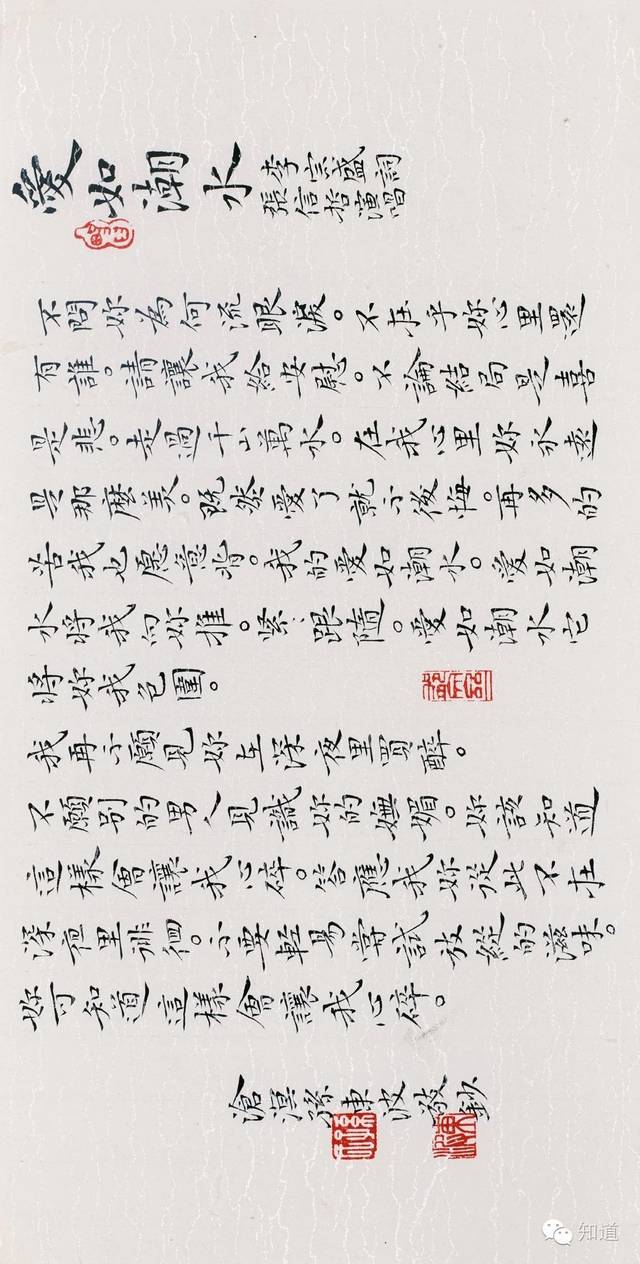 愛如潮水
李宗盛詞
張信哲演唱
不問妳為何流眼淚。不在乎妳心里還
有誰。請讓我給安慰。不論結局是喜
是悲。走過千山萬水。在我心里妳永遠
是那麼美。既然愛了就不後悔。再多的
苦我也愿意背。我的愛如潮水。愛如潮
水將我向妳推。緊:跟隨。愛如潮水它
將妳我包圍。
我再不願見妳在深夜里買醉。
不願別的男人見識妳的嫵媚。妳該知道
這樣會讓我心碎。答應我妳從此不在
深夜里徘徊。不要輕易嘗試放縱的滋味。
妳可知道這樣會讓我心碎。
滄溟孫東波敬鈔
知道